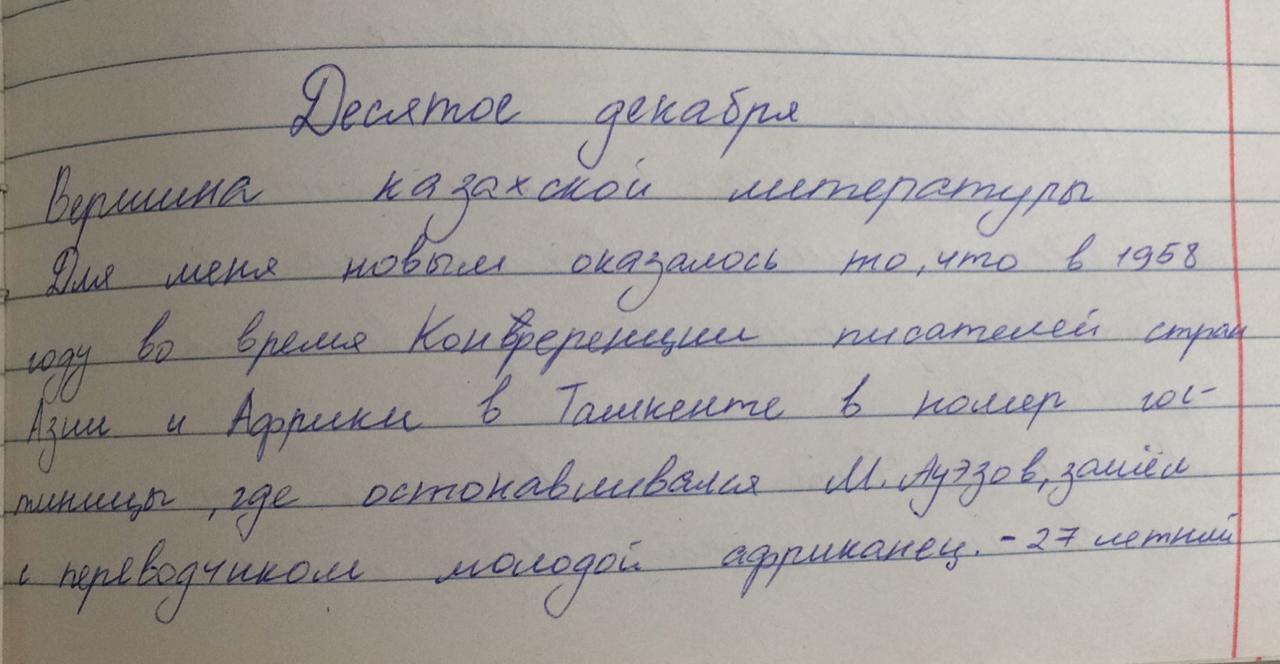 Десятое декабря
Вершина казахской литературы
Для меня новым оказалось то, что в 1958
году во время Конференции писателей стран
Азии и Африки в Ташкенте в номер гос-
тиницы, где остонавливался М. Ауэзов, зашёл
с переводчиком молодой африканец. - 27 летний